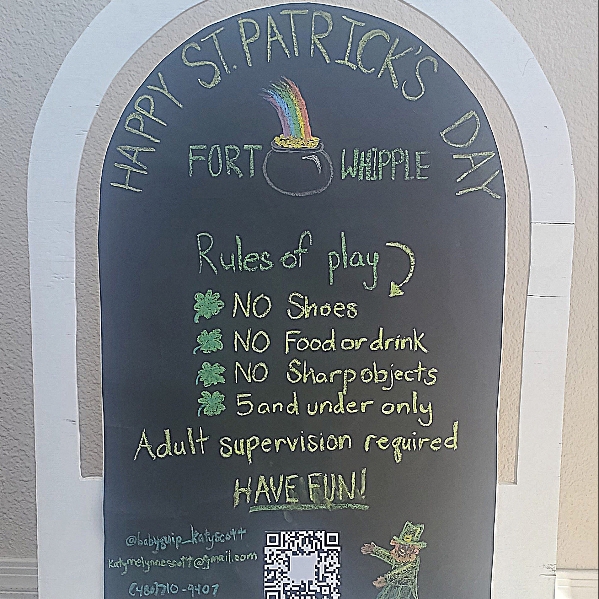 HAPPY ST. PATRICK'S DAY
FORT WHIPPLE
Rules of play
NO Shoes
NO Food or drink
NO Sharp objects
5 and under only
Adult supervision required
HAVE FUN!
@babyquip_katyscott
katymelynnescott@gmail.com
(480)710-9407